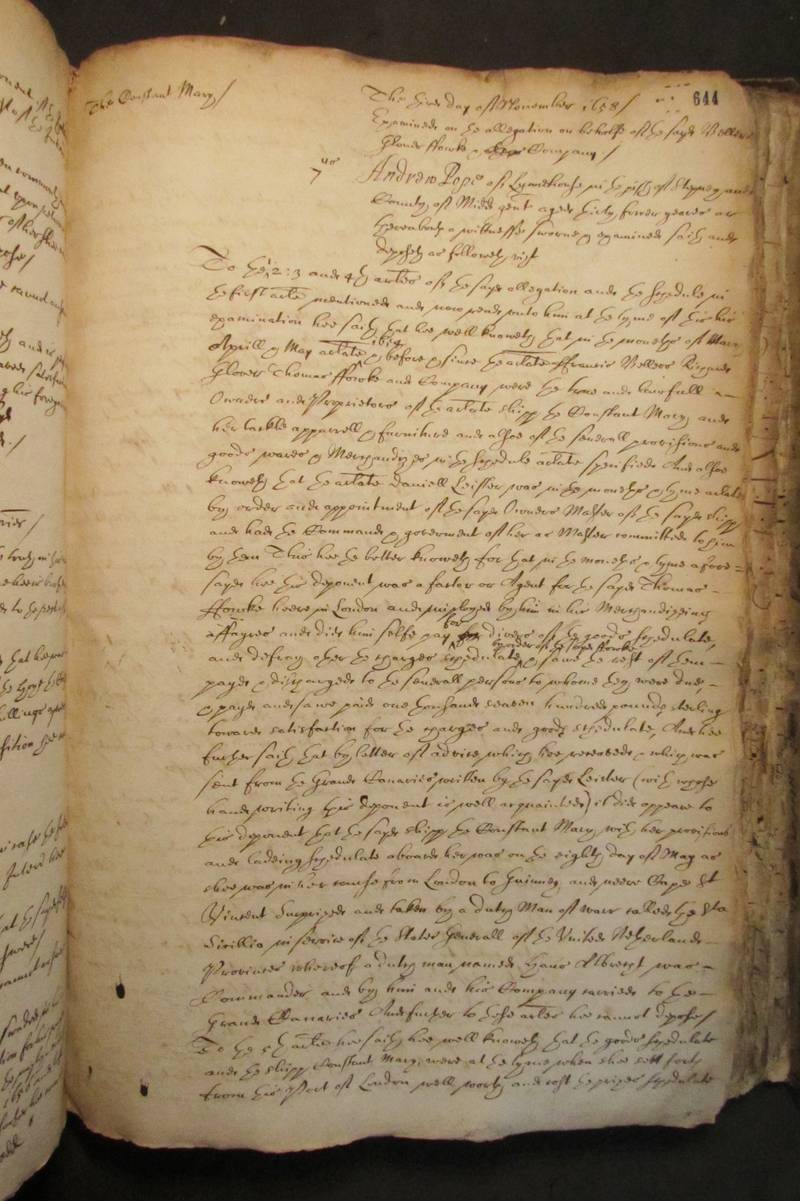 The Constant Mary /
644
The third day of November 1658 /
Examined on the allegation on behalfe of the sayd Vellers
Glover ffowke and Company /
7us
Andrew Pope of Lymehouse in the pish of Stepney and
County of Midd gent aged thirty fower yeares or
thereabouts a witnesse sworne & examined saith and
deposeth as followeth vizt
To the 1. 2: 3 and 4th arles of the sayd allegation and the schedule in
the first arle mentioned and now read unto him at the tyme of this his
examination hee saith that hee well knoweth that in the moneths of March
Aprill & May arlate 1658 & before & since the arlate ffrancis Vellers Richard
Glover Thomas ffowke and Company were the true and lawfull
Owners and Proprietors of the arlate shipp the Constant Mary and
her tackle apparrell & furniture and alsoe of the severall provisions and
goods wares & Merchandizes in the schedule arlate specified And alsoe
knoweth that the arlate Daniell Leister was in the moneths & tyme arlate
by order and appointment of the sayd Owners Master of the sayd shipp
and had the Command & goverment of her as Master committed to him
by them This hee the better knoweth for that in the moneths & tyme afore=
sayd hee this deponent was a factor or Agent for the sayd Thomas
ffowke heere in London and imployed by him in his Merchandizing
affayres and did him selfe pay for divers of the goods schedulate,
and defray other the charges schedulate by order of the sayd ffowke & sawe the rest of them
payd & discharged to the severall persons to whome they were due,
& payd and sawe paid one thousand seaven hundred pounds sterling
towards satisfaction for the charges and goods schedulate, And hee
further saith that by letter of advice which hee received & which was
sent from the Grand Canaries written by the sayd Leister (with whose
handwriting this deponent is well acquainted) it did appeare to
this deponent that the sayd shipp the Constant Mary with her provisions
and lading schedulate aboard her was on the eighth day of May as
shee was in her course from London to Guinney and neere Cape St
Vincent surprized and taken by a dutch Man of warr called the Sta
Cicillia in service of the States Generall of the United Netherlands
Provinces whereof a dutch man named Hans Albrecht was
Commander and by him and his Company carried to the
Grand Canaries And further to these arles hee cannot depose /
To the 5th arle hee saith hee well knoweth that the goods schedulate
and the shipp Constant Mary were at the tyme when shee sett forth
from this Port of London well worth and cost the prizes schedulate